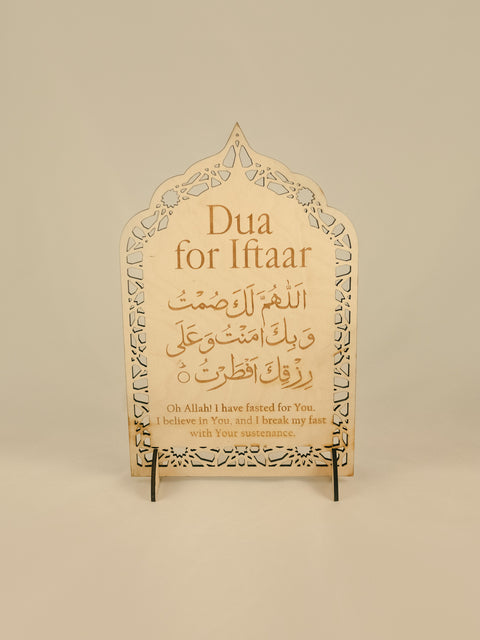 Dua
for Iftaar
اَللّٰهُمَّ لَكَ صُمْتُ
وَبِكَ اٰمَنْتُ وَعَلٰى
رِزْقِكَ اَفْطَرْتُ ۝
Oh Allah! I have fasted for You.
I believe in You, and I break my fast
with Your sustenance.